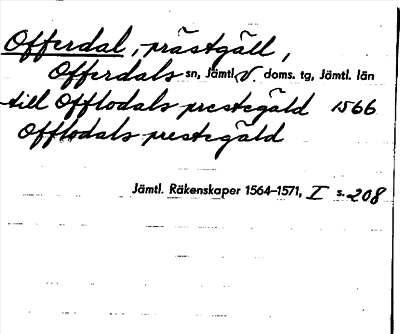 Offerdal, prästgäll,
Offerdals sn, Jämtl. v. doms. tg, Jämtl. län
till Offlodals prestegäld 1566
Offlodals prestegäld
Jämtl. Räkenskaper 1564-1571, I s. 208